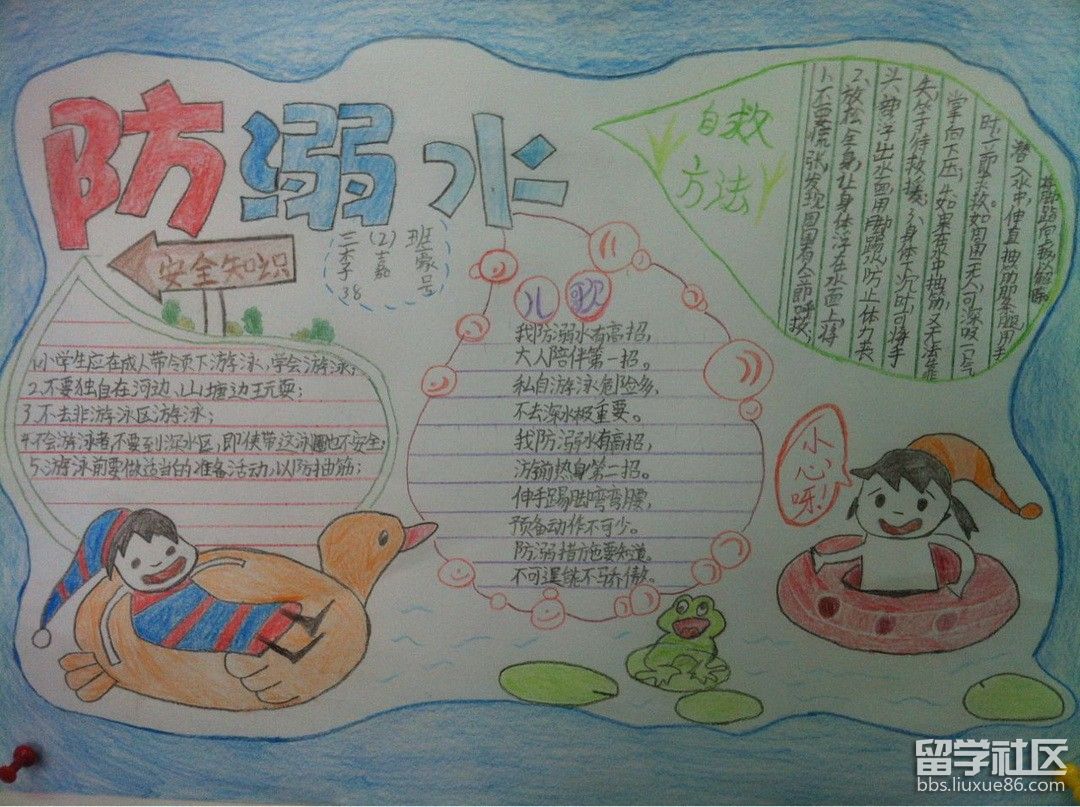 防溺水
安全知识
三(2)班
李嘉豪
38号
1.小学生应在成人带领下游泳,学会游泳;
2.不要独自在河边、山塘边玩耍;
3.不去非游泳区游泳;
4.不会游泳者不要到深水区,即使带这泳圈也不安全;
5.游泳前要做适当的准备活动,以防抽筋;
儿歌
我防溺水有高招,
大人陪伴第一招。
私自游泳危险多,
不去深水极重要。
我防溺水有高招,
游前热身第二招。
伸手踢脚弯弯腰,
预备动作不可少。
防溺措施要知道。
不可逞能不骄傲。
自救
方法
1.不要慌张,发现周围有人立即呼救;
2.放松全身,让身体浮在水面上,将
头部浮出水面,用脚踢水,防止体力丧
失,等待救援;3.身体下沉时,可将手
掌向下压;4.如果在水中抽筋,又无法靠
时,立即求救。如周围无人,可深吸一口气
潜入水中,伸直抽筋那条腿,用手
小心呀!
留学社区
bbs.liuxue86.com